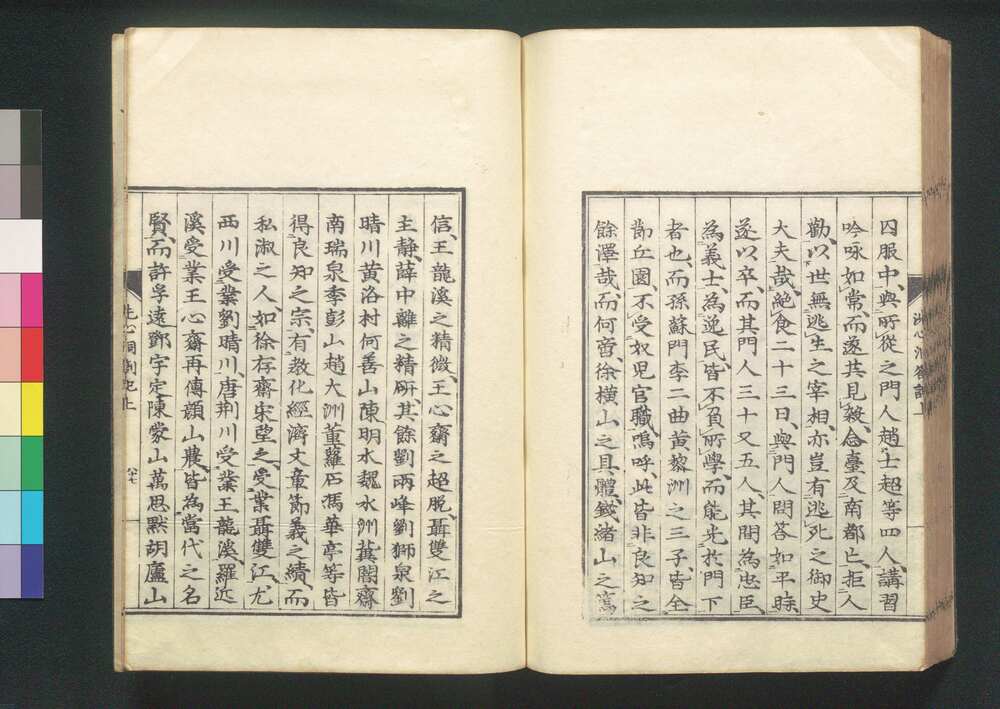 囚服中、與所從之門人趙士超等四人、講習
吟咏如常、而遂其見赦、合臺及南都亡、拒人
勸、以世無逃生之宰相、亦豈有逃死之御史
大夫哉、絶食二十三日、與門人問答如平時
遂以卒、而其門人三十又五人、其間為忠臣、
為義士、為逸民、皆不負所學、而能光於門下
者也、而孫蘇門李二曲黃黎洲之三子、皆全
節丘園、不受奴児官職、嗚呼、此皆非良知之
餘澤哉、而何啻徐橫山之具體、錢緒山之篤
信、王龍溪之精微、王心齋之超脱、聶雙江之
主靜、薛中離之精研、其餘劉兩峰劉獅泉劉
晴川黃洛村何善山陳明水魏水洲黃闇齋
南瑞泉季彭山趙大洲董蘿石馮華亭等皆
得良知之宗、有教化經濟文章節義之績、而
私淑之人、如徐存齋宋望之、受業聶雙江、尤
西川受業劉晴川、唐荆川受業王龍溪、羅近
溪受業王心齋再傳顔山農、皆為當代之名
賢、而許孚遠鄧宇定陳蒙山萬思默胡廬山
洗心洞劄記上